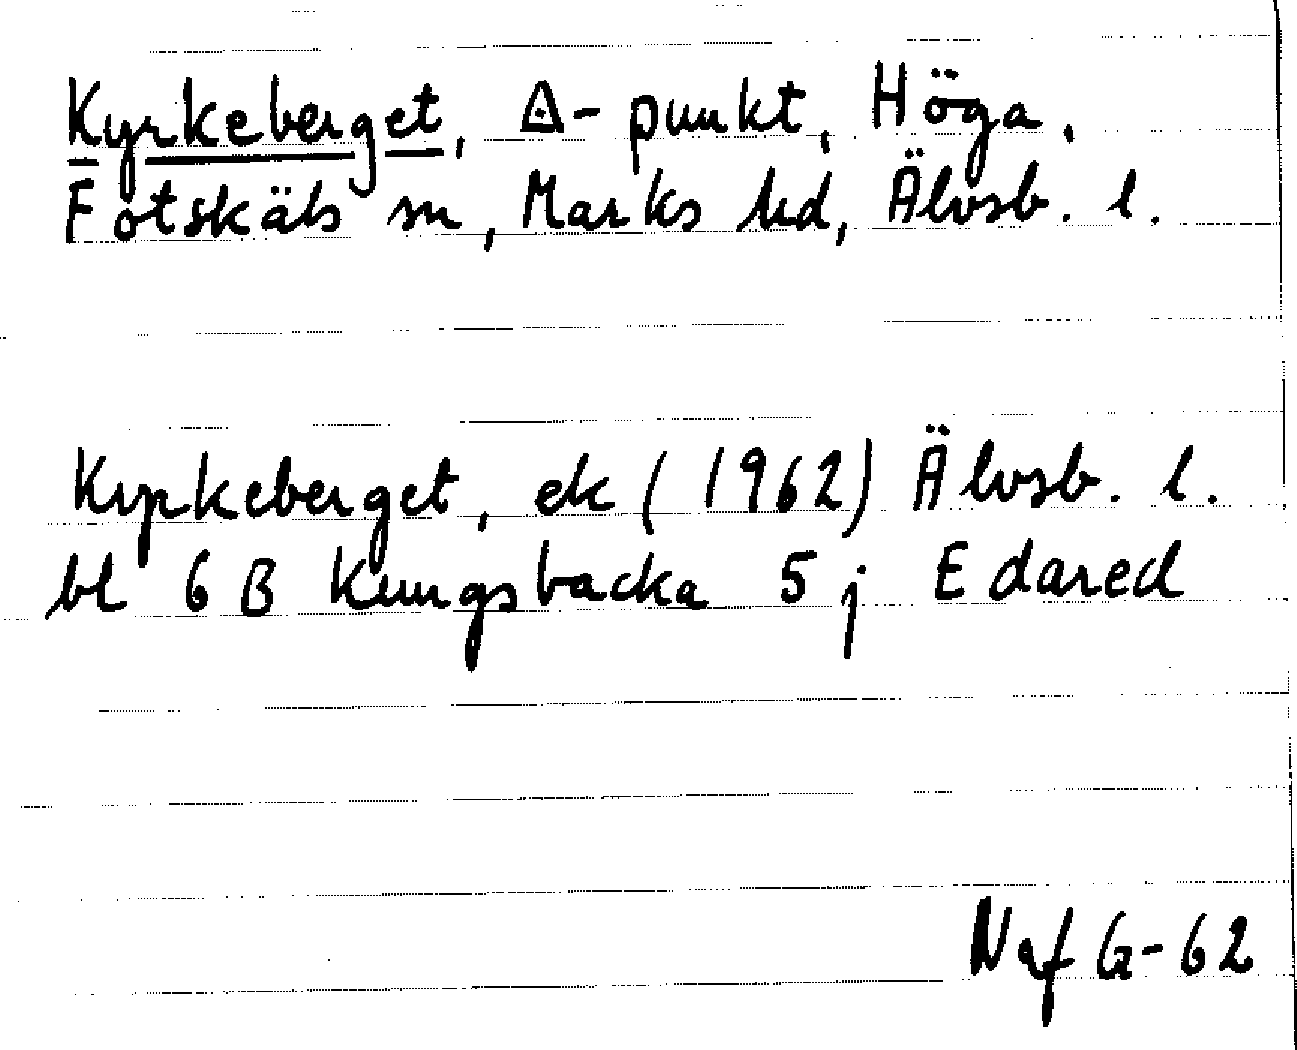 Kyrkeberget, △-punkt, Höga,
Fotskäls sn, Marks hd, Älvsb. l.
Kyrkeberget, ek (1962) Älvsb. l.
bl 6 B Kungsbacka 5 j Edared
NafG-62